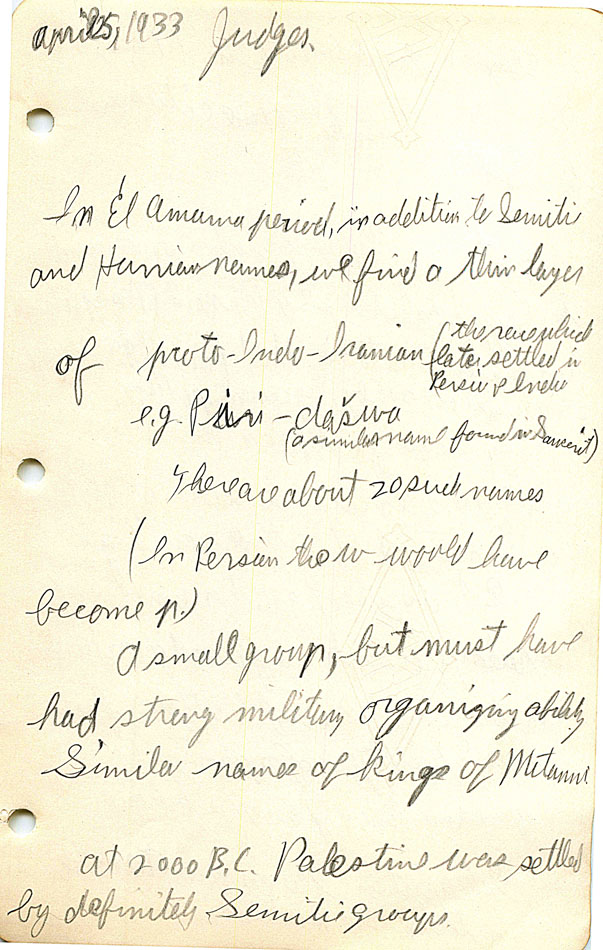 april 25, 1933 Judges.
In El Amarna period, in addition to Semiti
and Hurrian names, we find a thin layer
of proto-Indo-Iranian (the race which
later settled in
Persia & India
e.g. Piri-dašwa
(a similar name found in Sanscrit)
There are about 20 such names
(In Persian the w would have
become p.)
A small group, but must have
had strong military organizing ability
Similar names of kings of Mitanni
at 2000 B.C. Palestine was settled
by definitely Semitic groups.